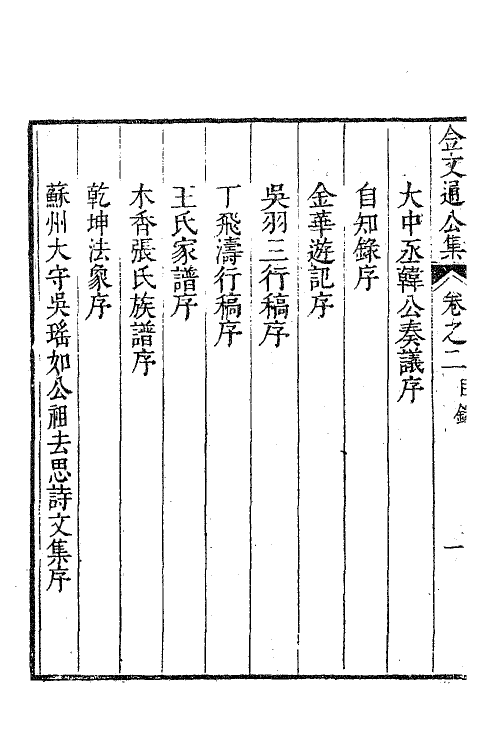 金文通公集 卷之二 目錄 一
大中丞韓公奏議序
自知錄序
金華遊記序
吳羽三行稿序
丁飛濤行稿序
王氏家譜序
木香張氏族譜序
乾坤法象序
蘇州大守吳瑶如公祖去思詩文集序